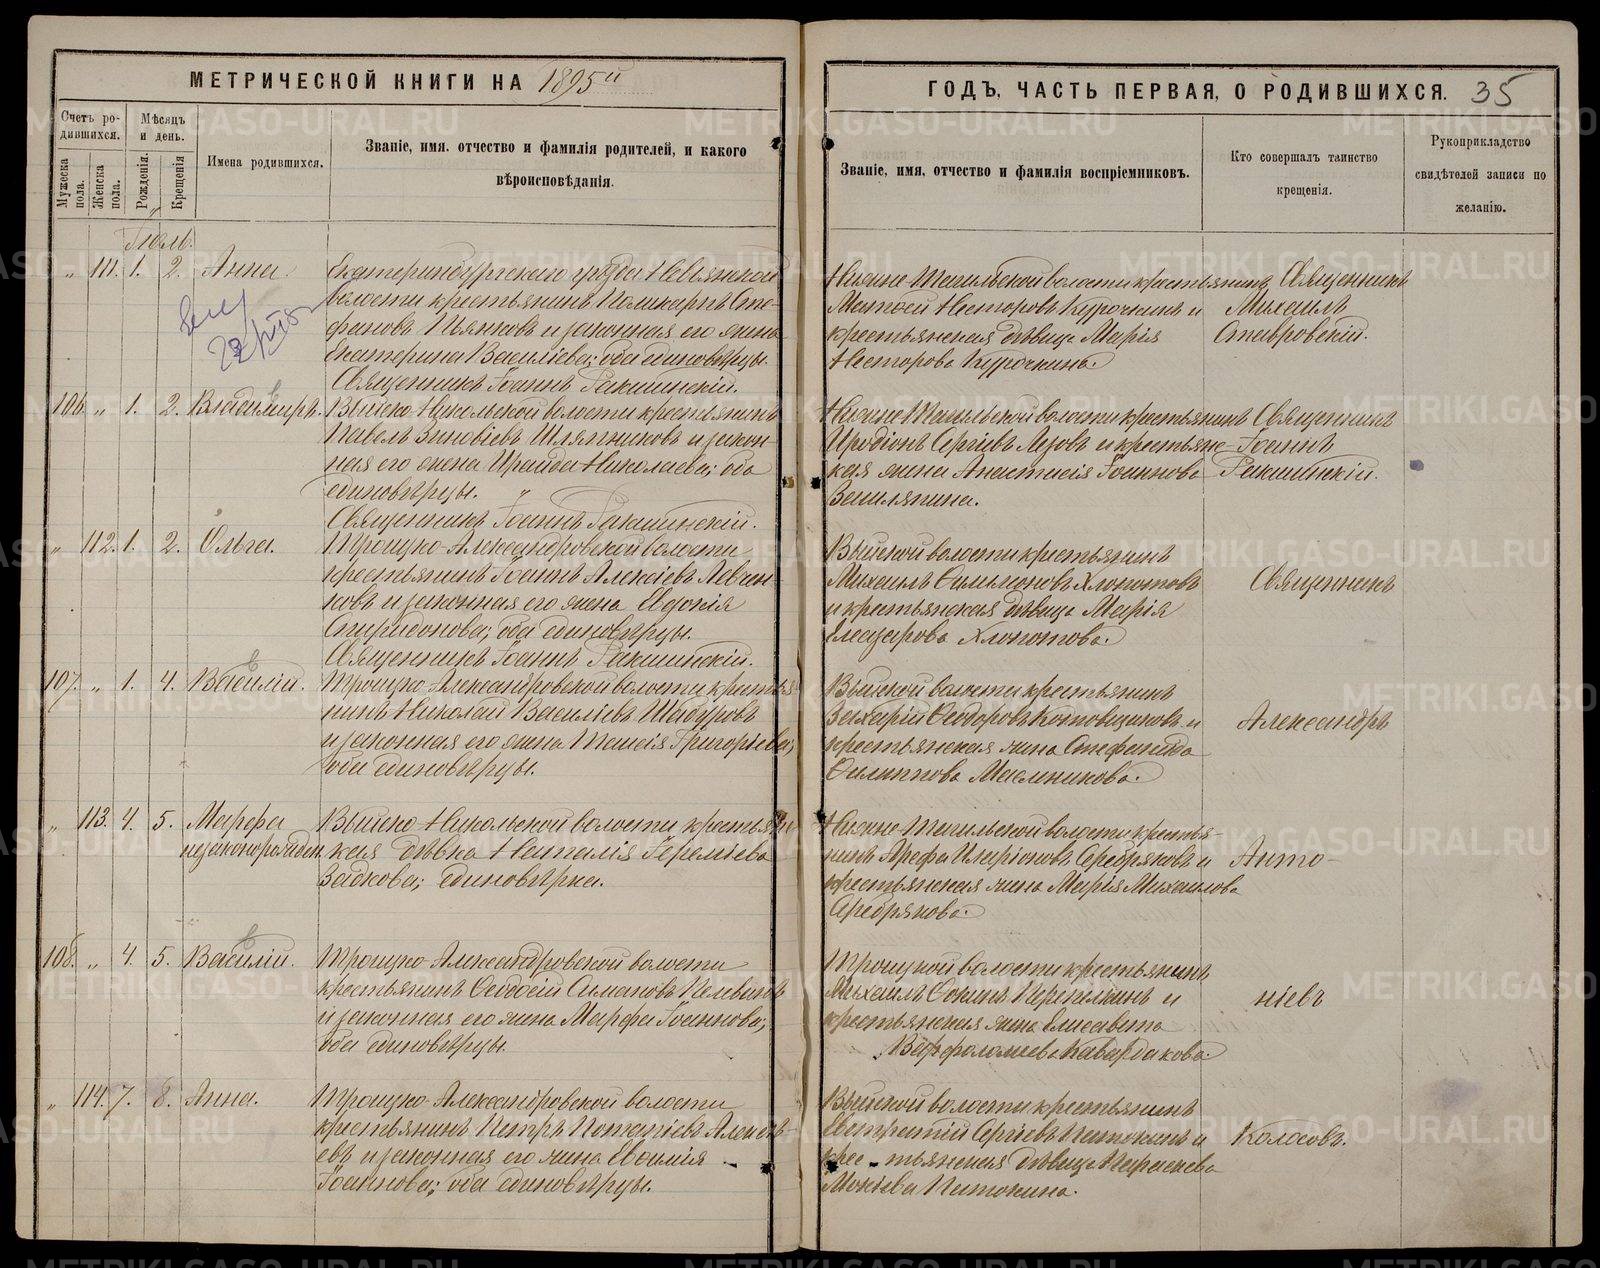 МЕТРИЧЕСКОЙ КНИГИ НА 1895й
ГОДЪ, ЧАСТЬ ПЕРВАЯ, О РОДИВШИХСЯ. 35
Счетъ родившихся.
Мужеска пола.
Женска пола.
Мѣсяцъ и день.
Рожденія.
Крещенія
Имена родившихся.
Званіе, имя. отчество и фамилія родителей, и какого
вѣроисповѣданія.
Званіе, имя, отчество и фамилія воспріемниковъ.
Кто совершалъ таинство
крещенія.
Рукоприкладство
свидѣтелей записи по
желанію.
Іюль.
„ 111. 1. 2. Анна.
Екатеринбургскаго уѣзда Невьянской
волости крестьянинъ Поликарпъ Сте-
фановъ Пьянковъ и законная его жена
Екатерина Василіева; оба единовѣрцы.
Священникъ Іоаннъ Ракшинскій.
Нижне-Тагильской волости крестьянинъ
Матѳей Несторовъ Курочкинъ и
крестьянская дѣвица Марія
Несторова Курочкина.
Священникъ
Михаилъ
Ставровскій.
106. „ 1. 2. Владимиръ.
Выйско-Никольской волости крестьянинъ
Павелъ Зиновіевъ Шляпниковъ и закон-
ная его жена Ираида Николаева; оба
единовѣрцы.
Священникъ Іоаннъ Ракшинскій.
Нижне-Тагильской волости крестьянинъ
Иродіонъ Сергіевъ Лезовъ и крестьянс-
кая жена Анастасія Іоаннова
Земляnина.
Священникъ
Іоаннъ
Ракшинскій.
„ 112. 1. 2. Ольга.
Троицко-Александровской волости
крестьянинъ Іоаннъ Алексіевъ Левчен-
ковъ и законная его жена Евдокія
Спиридонова; оба единовѣрцы.
Священникъ Іоаннъ Ракшинскій.
Выйской волости крестьянинъ
Михаилъ Филимоновъ Хлопотовъ
и крестьянская дѣвица Марія
Елеазарова Хлопотова.
Священникъ
107. „ 1. 4. Василій.
Троицко-Александровской волости крестья-
нинъ Николай Василіевъ Шабуровъ
и законная его жена Таисія Григоріева;
оба единовѣрцы.
Выйской волости крестьянинъ
Захарій Ѳедоровъ Котовщиковъ и
крестьянская жена Стефанида
Филиппова Масленникова.
Александръ
„ 113. 4. 5. Марѳа
незаконорожден.
Выйско-Никольской волости крестьянс-
кая дѣвка Наталія Іереміева
Зайкова; единовѣрка.
Нижне-Тагильской волости крестья-
нинъ Арефа Иларіоновъ Серебряковъ и
крестьянская жена Марія Михаилова
Серебрякова.
Анто-
108. „ 4. 5. Василій.
Троицко-Александровской волости
крестьянинъ Ѳеодосій Симановъ Пелевинъ
и законная его жена Марѳа Іоаннова;
оба единовѣрцы.
Троицкой волости крестьянинъ
Михаилъ Ѳокинъ Перезилкинъ и
крестьянская жена Елисавета
Варѳоломеева Кавардакова.
ніевъ
„ 114. 7. 8. Анна.
Троицко-Александровской волости
крестьянинъ Петръ Потапіевъ Алексѣ-
евъ и законная его жена Евѳимія
Іоаннова; оба единовѣрцы.
Выйской волости крестьянинъ
Евстратій Сергіевъ Патокинъ и
крестьянская дѣвица Параскева
Мокіева Патокина.
Колосовъ.
METRIKI.GASO-URAL.RU